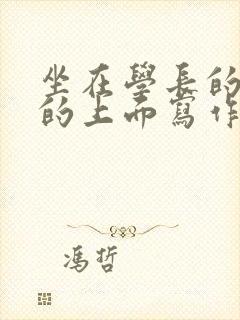 坐在學長的
的上而寫作
馮哲